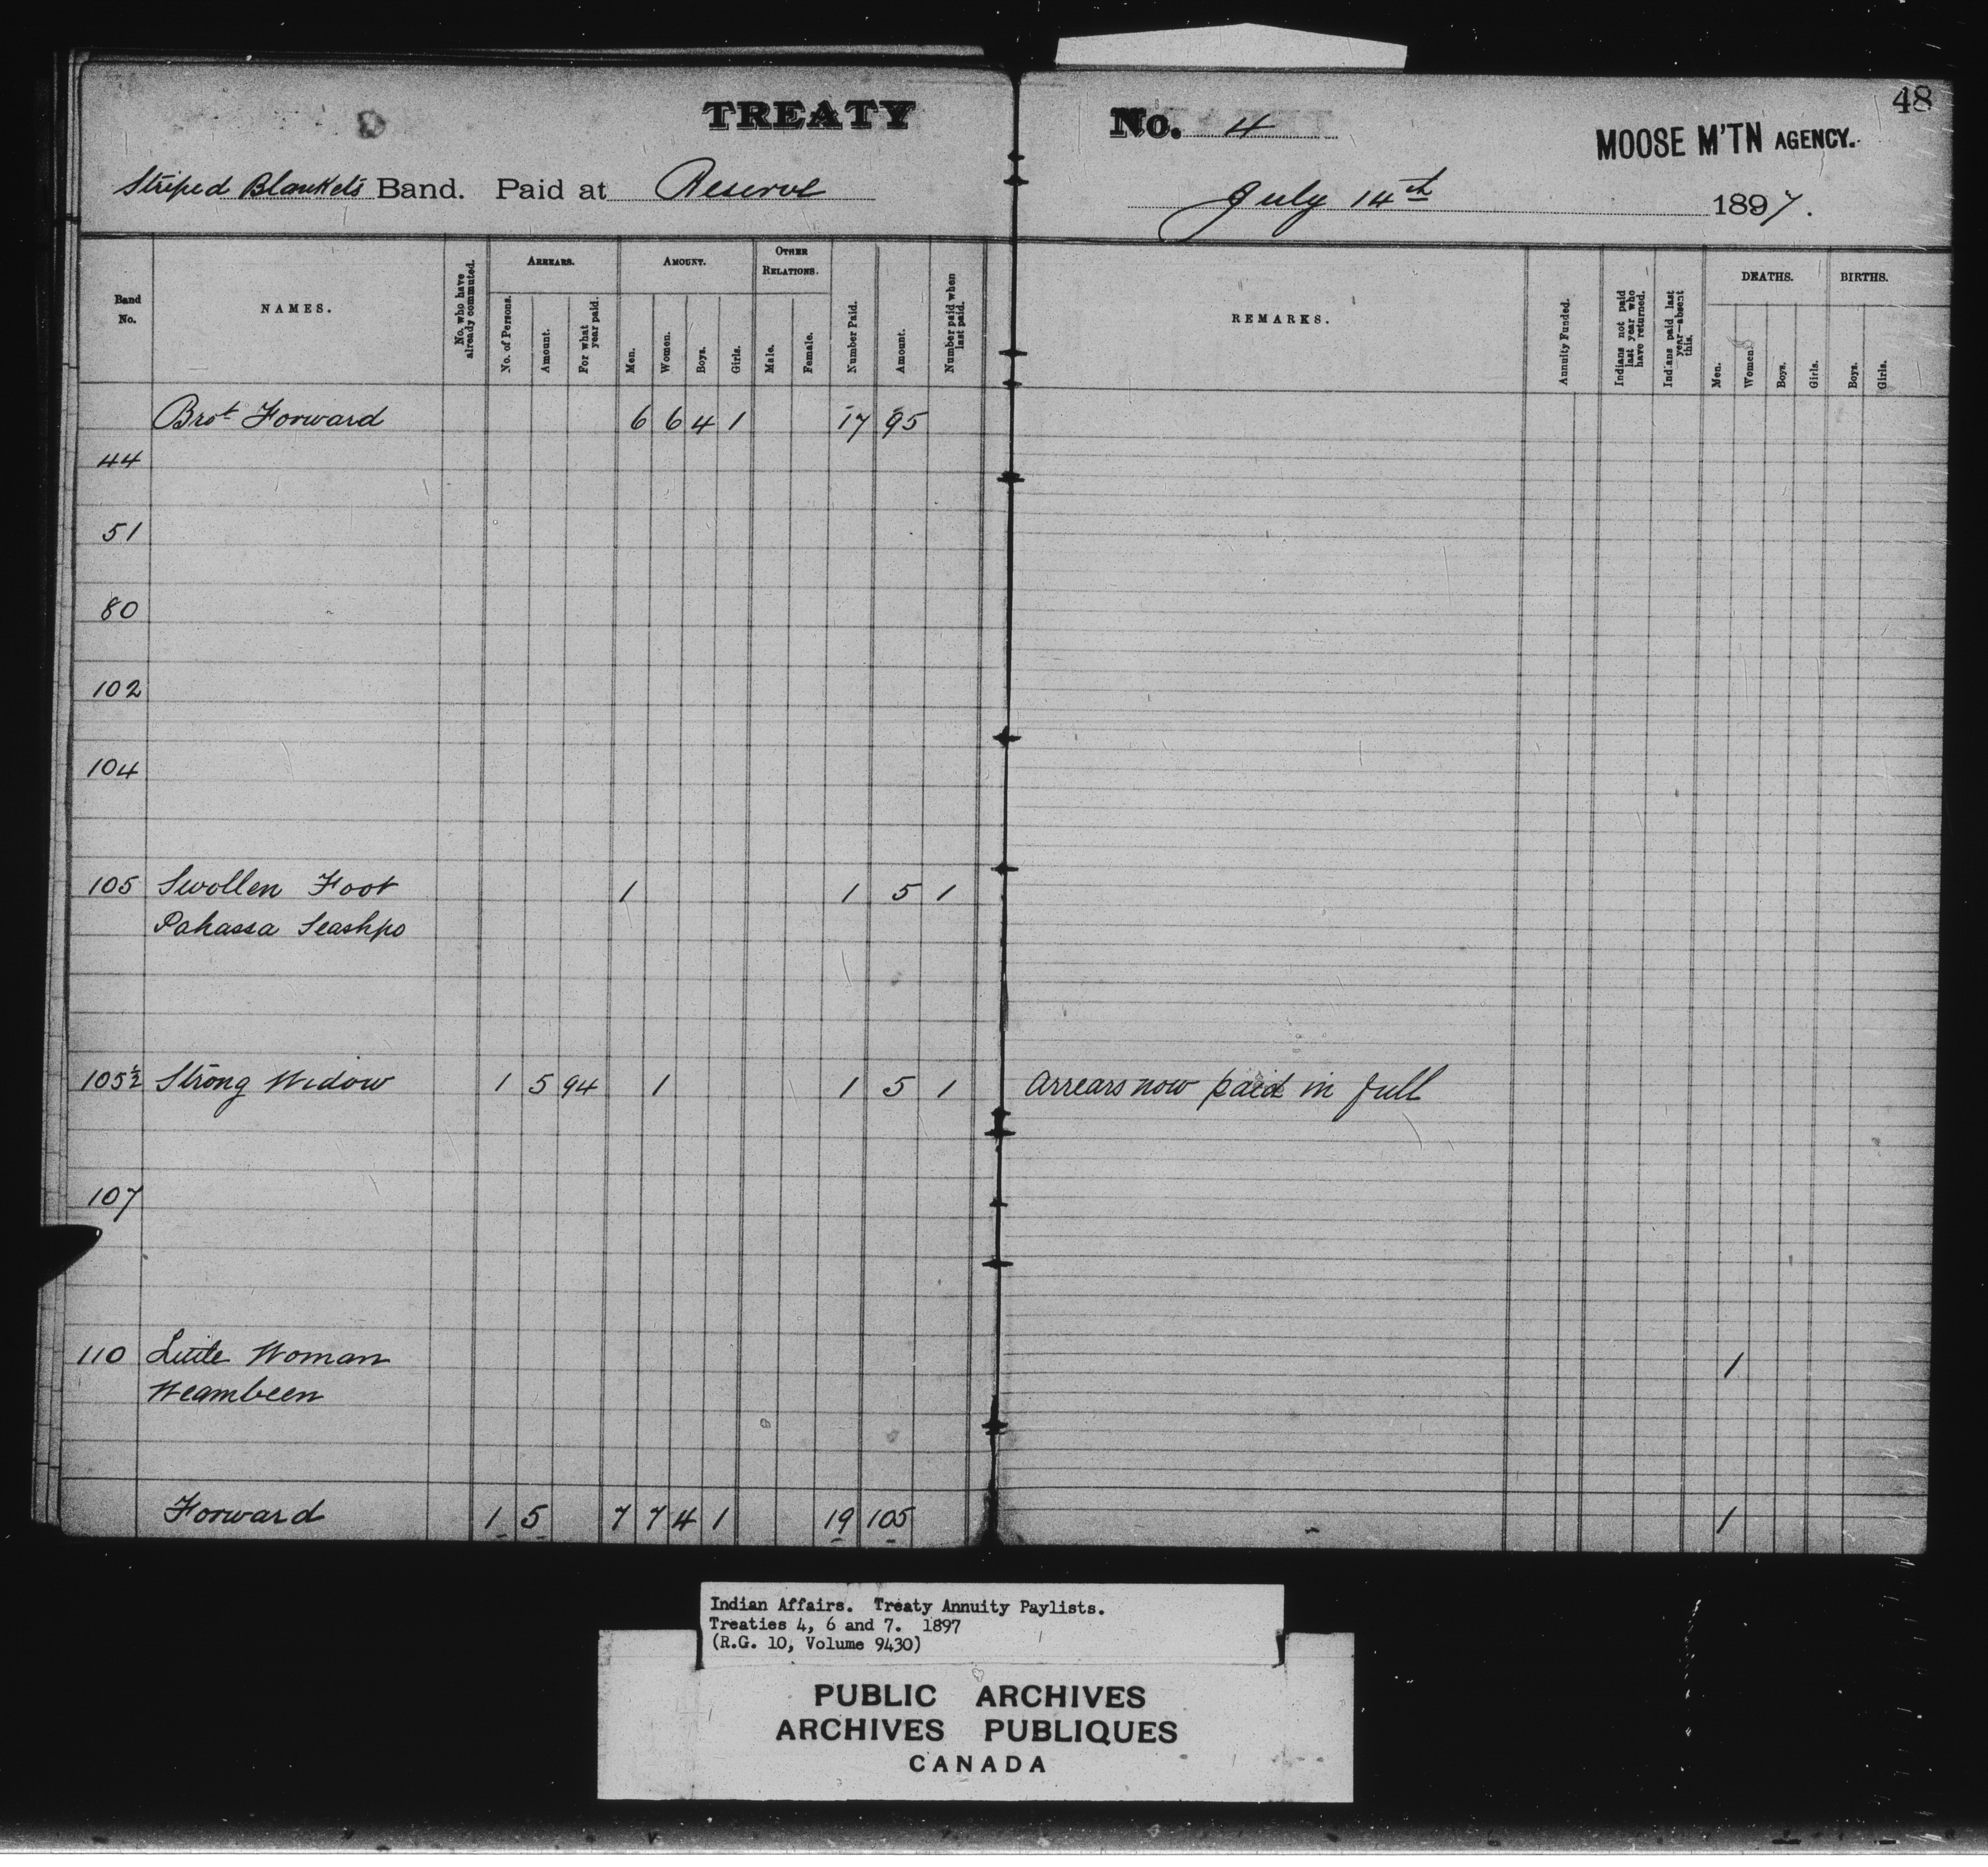 TREATY No. 4
48
MOOSE M'TN AGENCY.
Striped Blankets Band. Paid at Reserve July 14th 1897.
Band No.
NAMES.
No. who have already commuted.
ARREARS.
No. of Persons.
Amount.
For what year paid.
AMOUNT.
Men.
Women.
Boys.
Girls.
OTHER RELATIONS.
Male.
Female.
Number Paid.
Amount.
Number paid when last paid.
REMARKS.
Annuity Funded.
Indians not paid last year who have returned.
Indians paid last year—absent this.
DEATHS.
Men.
Women.
Boys.
Girls.
BIRTHS.
Boys.
Girls.
Brot Forward 6 6 4 1 17 95
44
51
80
102
104
105 Swollen Foot 1 1 5 1
Pahassa Seashpo
105½ Strong Widow 1 5 94 1 1 5 1 Arrears now paid in full
107
110 Little Woman 1
Weambeen
Forward 1 5 7 7 4 1 19 105 1
Indian Affairs. Treaty Annuity Paylists.
Treaties 4, 6 and 7. 1897
(R.G. 10, Volume 9430)
PUBLIC ARCHIVES
ARCHIVES PUBLIQUES
CANADA